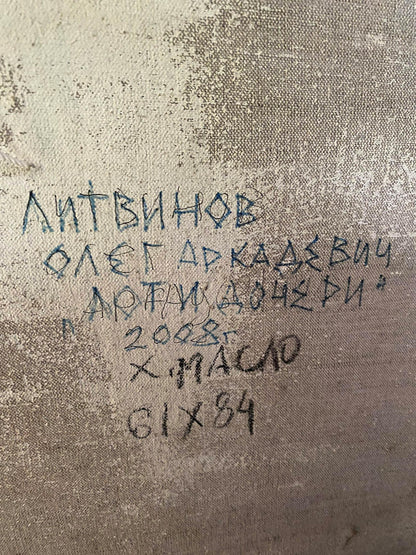 ЛИТВИНОВ
ОЛЕГ АРКАДЕВИЧ
" ДОЧЕРИ"
2008г
Х.МАСЛО
61X84